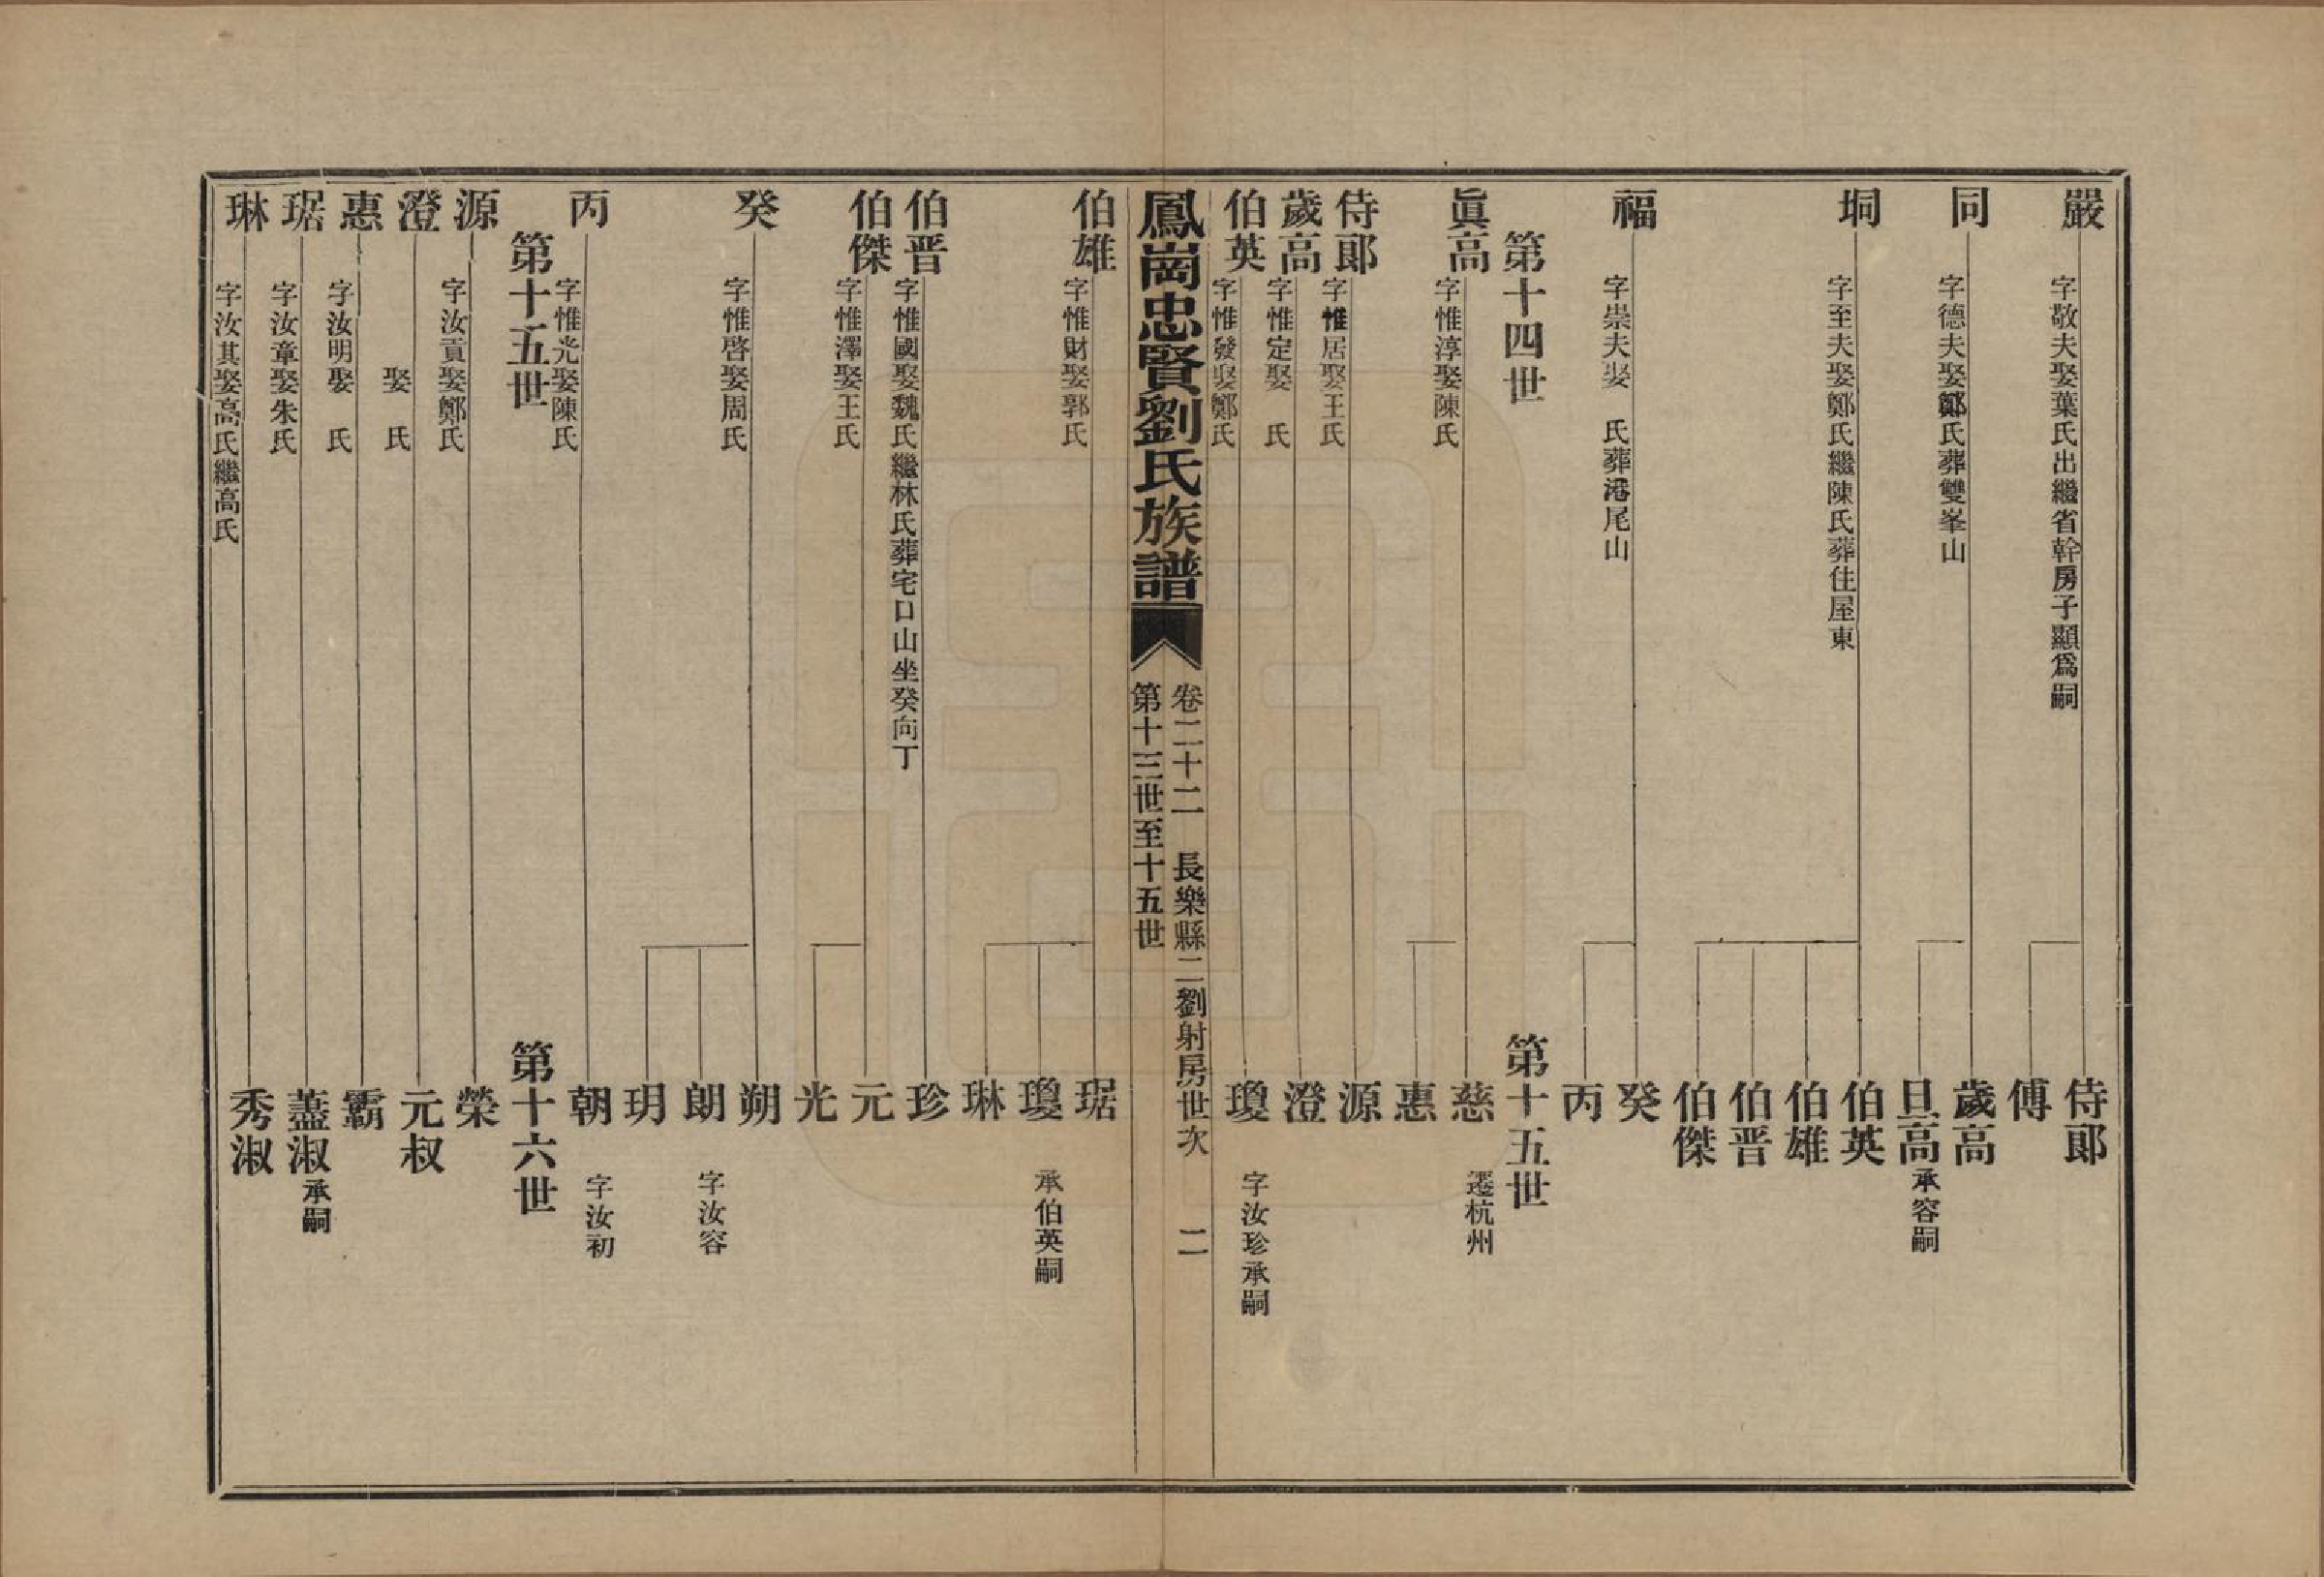 嚴
字敬夫娶葉氏出繼省幹房子顯爲嗣
侍郎
傅
同
字德夫娶鄭氏葬雙峯山
歲高
旦高
承容嗣
垌
字至夫娶鄭氏繼陳氏葬住屋東
伯英
伯雄
伯晋
伯傑
福
字崇夫娶　氏葬港尾山
癸
丙
第十四世
第十五世
眞高
字惟淳娶陳氏
慈
遷杭州
惠
侍郎
字惟居娶王氏
源
歲高
字惟定娶　氏
澄
伯英
字惟發娶鄭氏
瓊
字汝珍承嗣
鳳崗忠賢劉氏族譜
卷二十二　長樂縣二劉射房世次　二
第十三世至十五世
伯雄
字惟財娶郭氏
琚
瓊
承伯英嗣
琳
伯晋
字惟國娶魏氏繼林氏葬宅口山坐癸向丁
珍
伯傑
字惟澤娶王氏
元
光
癸
字惟啓娶周氏
朔
朗
字汝容
玥
丙
字惟光娶陳氏
朝
字汝初
第十五世
第十六世
源
字汝貢娶鄭氏
榮
澄
娶　氏
元叔
惠
字汝明娶　氏
霸
琚
字汝章娶朱氏
藎淑
承嗣
琳
字汝其娶高氏繼高氏
秀淑